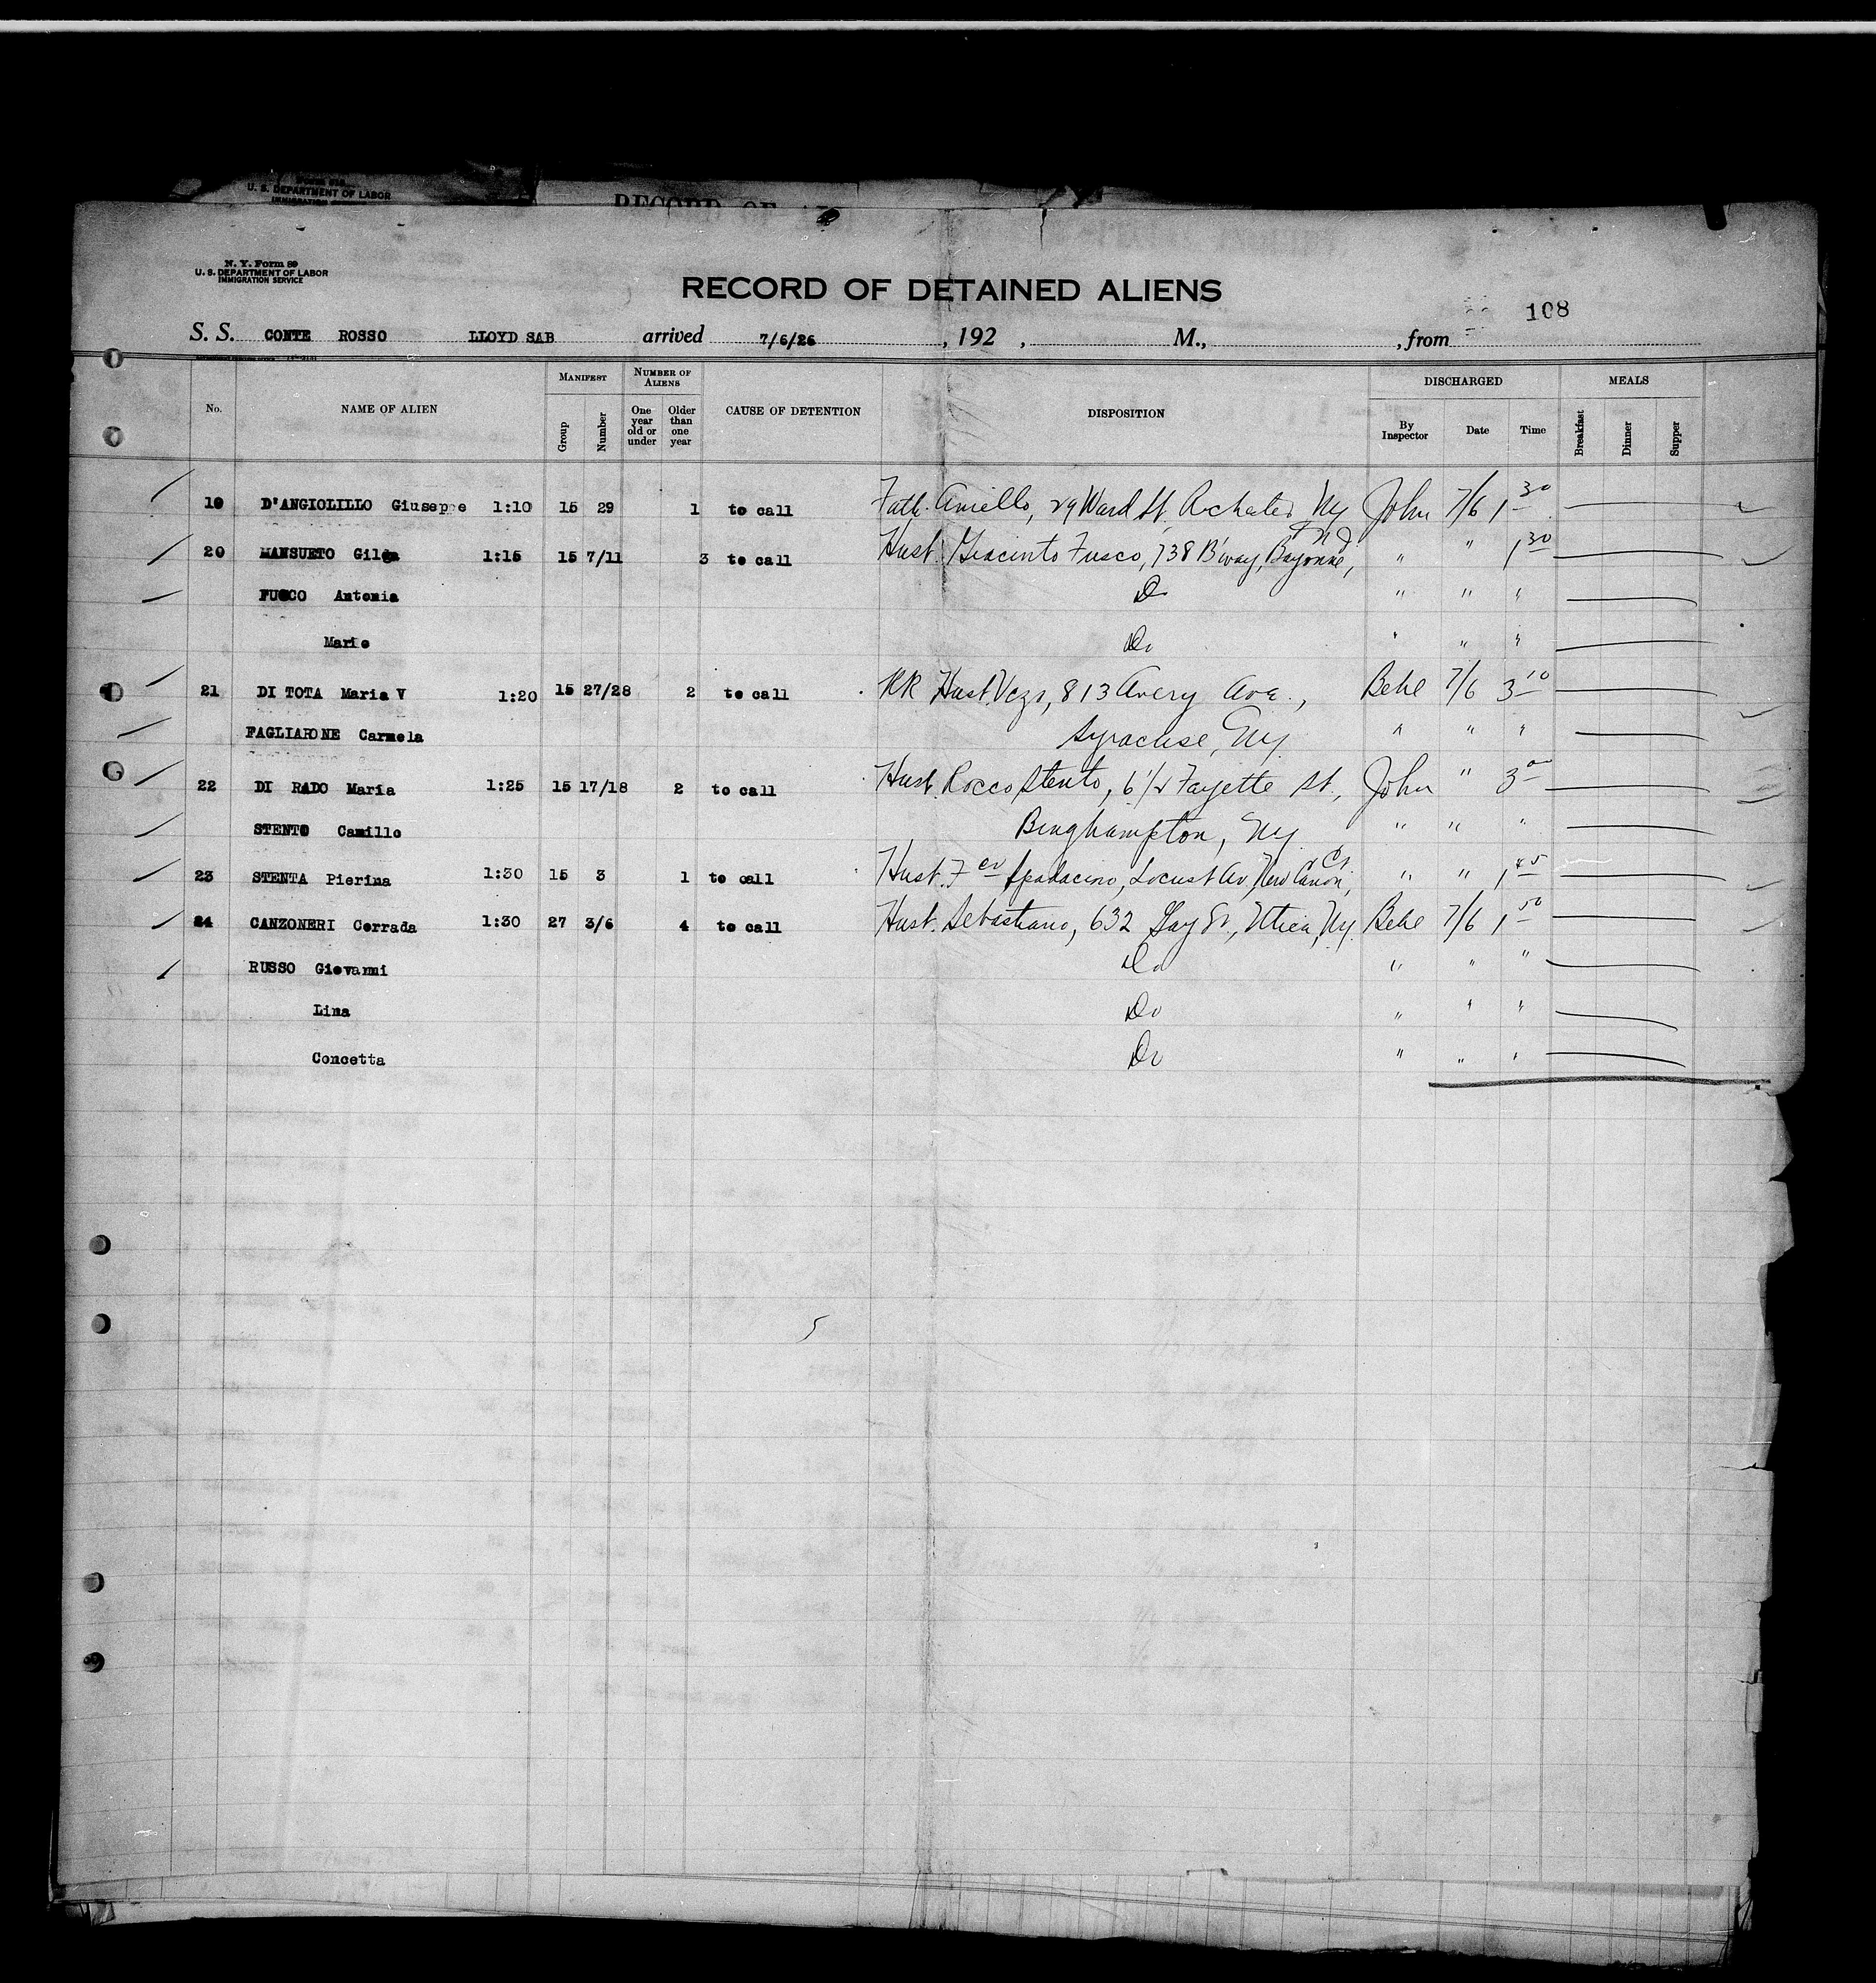 U. S. DEPARTMENT OF LABOR
RECORD OF
N. Y. Form 89
U. S. DEPARTMENT OF LABOR
IMMIGRATION SERVICE
RECORD OF DETAINED ALIENS
108
S. S. CONTE ROSSO LLOYD SAB arrived 7/6/26, 192 , M., , from
No. NAME OF ALIEN MANIFEST Group Number NUMBER OF ALIENS One year old or under Older than one year CAUSE OF DETENTION DISPOSITION DISCHARGED By Inspector Date Time MEALS Breakfast Dinner Supper
19 D'ANGIOLILLO Giuseppe 1:10 15 29 1 to call Fath. Aniello, 29 Ward St. Rochester NY John 7/6 1 30
20 MANSUETO Gilda 1:15 15 7/11 3 to call Husb. Giacinto Fusco, 738 B'way, Bayonne, NJ " " 1 30
FUSCO Antonia Do " " "
Marie Do " " "
21 DI TOTA Maria V 1:20 15 27/28 2 to call RR Husb. Vczo, 813 Avery Ave., Behe 7/6 3 10
PAGLIARONE Carmela Syracuse, NY " " "
22 DI RADO Maria 1:25 15 17/18 2 to call Husb. Rocco Stento, 6 1/2 Fayette St., John " 3 00
STENTO Camillo Binghampton, NY " " "
23 STENTA Pierina 1:30 15 3 1 to call Husb. Fco Spadacino, Locust Av. New Canon, Ct. " " 1 45
24 CANZONERI Corrada 1:30 27 3/6 4 to call Husb. Sebastiano, 632 Gay St., Utica, NY. Behe 7/6 1 50
RUSSO Giovanni Do " " "
Lina Do " " "
Concetta Do " " "